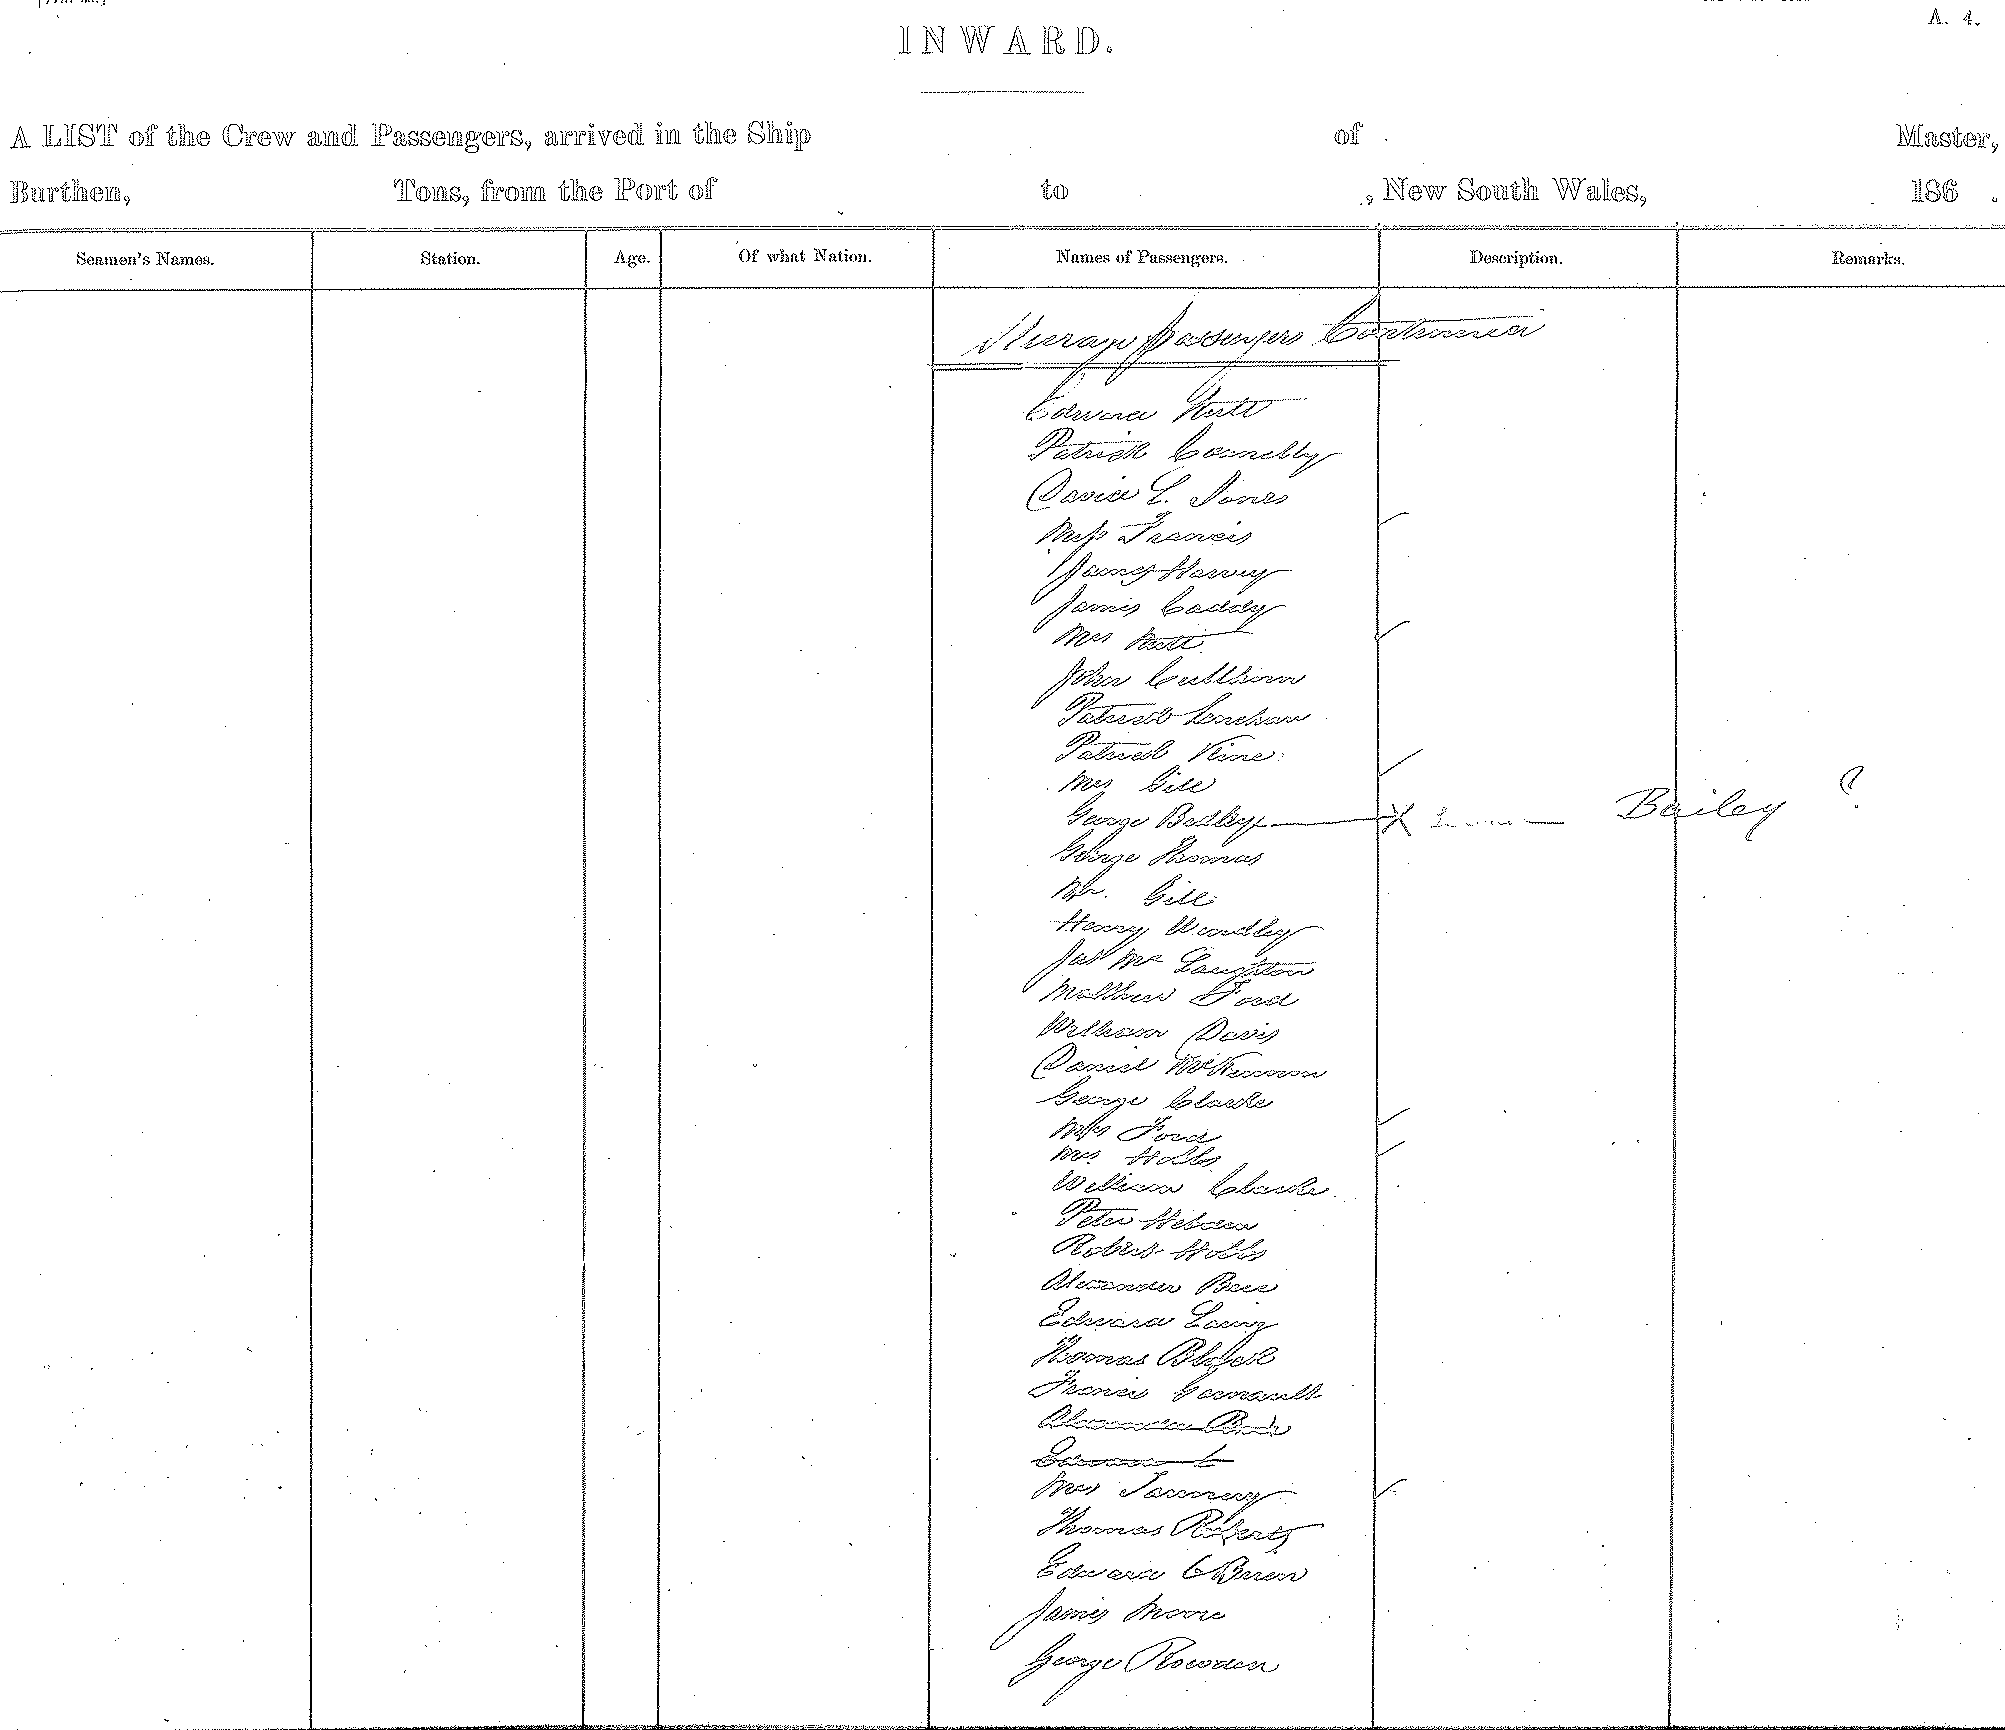 A. 4.
INWARD.
A LIST of the Crew and Passengers, arrived in the Ship of Master,
Burthen, Tons, from the Port of to , New South Wales, 186 .
Seamen's Names. Station. Age. Of what Nation. Names of Passengers. Description. Remarks.
Steerage Passengers Continued
Edward Nutt
Patrick Connelly
David L. Jones
Miss Francis
James Harvey
James Caddy
Mrs Nutt
John Cullinan
Patrick Lenehan
Patrick Kine
Mrs Gill
George Bedley Bailey ?
George Thomas
Mr. Gill
Henry Wendley
Jas Mc Laughton
Matthew Ford
William Davis
Daniel McKinnon
George Clarke
Mrs Ford
Mrs Hobbs
William Clarke
Peter
Robert Hobbs
Alexander
Edward Laing
Thomas Black
Francis
Mrs Tanney
Thomas Roberts
Edward OBrien
James Moore
George Rowden